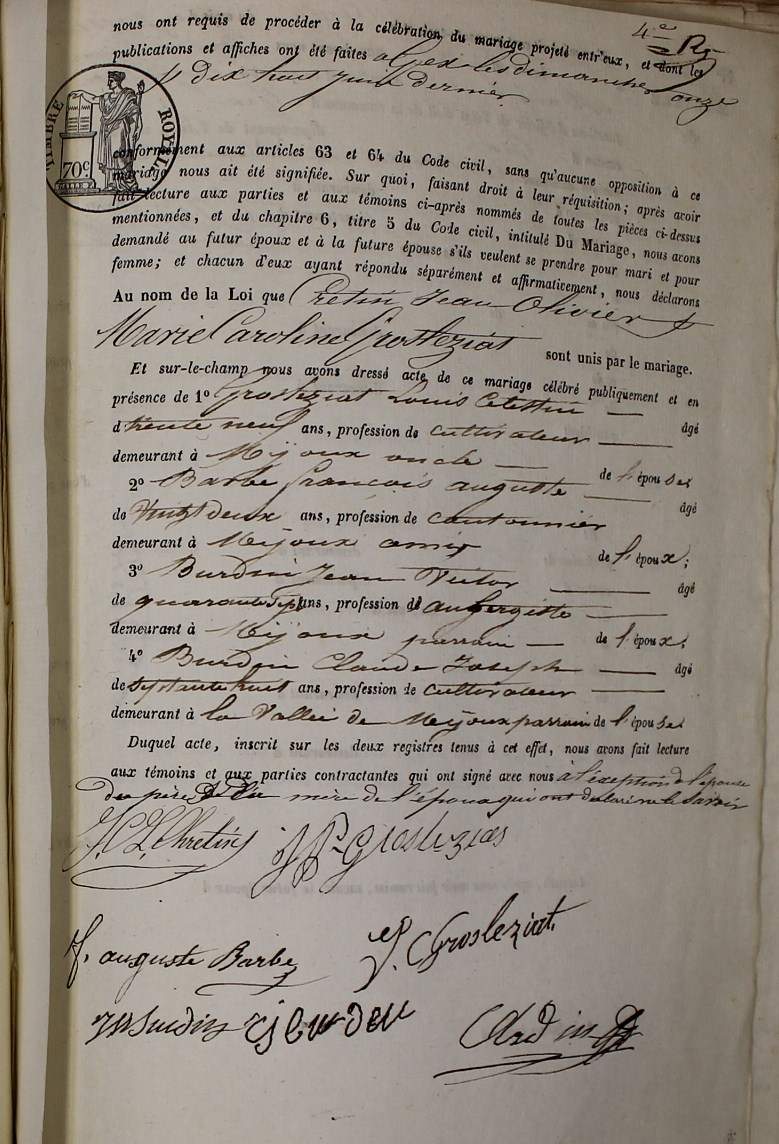 4e
nous ont requis de procéder à la célébration du mariage projeté entr'eux, et dont les
publications et affiches ont été faites a Gex les dimanches onze
& dix huit juin dernier
TIMBRE ROYAL
70c
conformément aux articles 63 et 64 du Code civil, sans qu'aucune opposition à ce
mariage nous ait été signifiée. Sur quoi, faisant droit à leur réquisition; après avoir
fait lecture aux parties et aux témoins ci-après nommés de toutes les pièces ci-dessus
mentionnées, et du chapitre 6, titre 5 du Code civil, intitulé Du Mariage, nous avons
demandé au futur époux et à la future épouse s'ils veulent se prendre pour mari et pour
femme; et chacun d'eux ayant répondu séparément et affirmativement, nous déclarons
Au nom de la Loi que Cretin Jean Olivier &
Marie Caroline Grosleziat sont unis par le mariage.
Et sur-le-champ nous avons dressé acte de ce mariage célébré publiquement et en
présence de 1º Grosleziat Louis Celestin âgé
d trente neuf ans, profession de cultivateur
demeurant à Mijoux oncle de l'épouse;
2º Barbe françois auguste âgé
de vingt deux ans, profession de cantonnier
demeurant à Mijoux ami de l'époux;
3º Burdin Jean Victor âgé
de quarante sept ans, profession d'aubergiste
demeurant à Mijoux parrain de l'époux;
4º Burdin Claude Joseph âgé
de septante huit ans, profession de cultivateur
demeurant à la Vallée de Mijoux parrain de l'épouse
Duquel acte, inscrit sur les deux registres tenus à cet effet, nous avons fait lecture
aux témoins et aux parties contractantes qui ont signé avec nous à l'exeption de l'épouse
du père & de la mère de l'épouse qui ont déclaré ne le savoir
J. O. Chretin Grosleziat
f. auguste Barbe J. Grosleziat